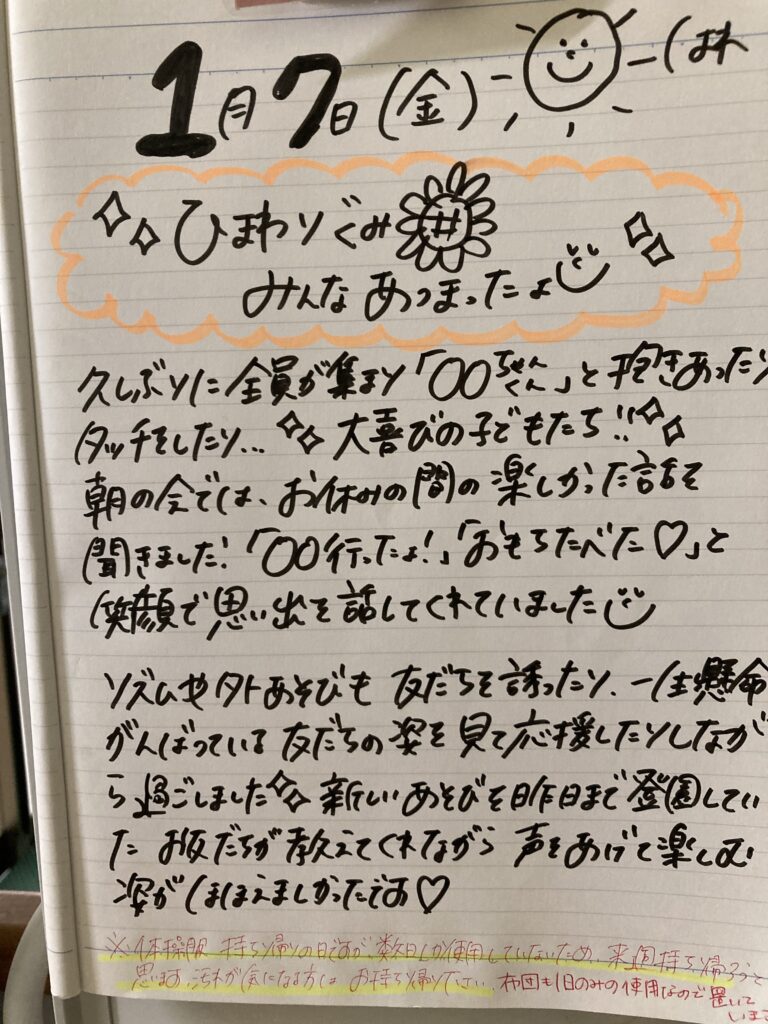 1月7日(金) はれ
ひまわりぐみ
みんなあつまったよ
久しぶりに全員が集まり「〇〇ちゃんくん」と抱きあったり
タッチをしたり… 大喜びの子どもたち!!
朝の会では、お休みの間の楽しかった話を
聞きました!「〇〇行ったよ!」「おもちたべた♡」と
笑顔で思い出を話してくれていました
リズムや外あそびも 友だちを誘ったり、一生懸命
がんばっている友だちの姿を見て応援したりしなが
ら過ごしました 新しいあそびを昨日まで登園してい
た お友だちが教えてくれながら 声をあげて楽しむ
姿がほほえましかったです♡
※体操服 持ち帰りの日ですが、数日しか使用していないため、来週持ち帰ろうと
思います。汚れが気になる方は お持ち帰りください。布団も1日のみの使用なので置いて
います